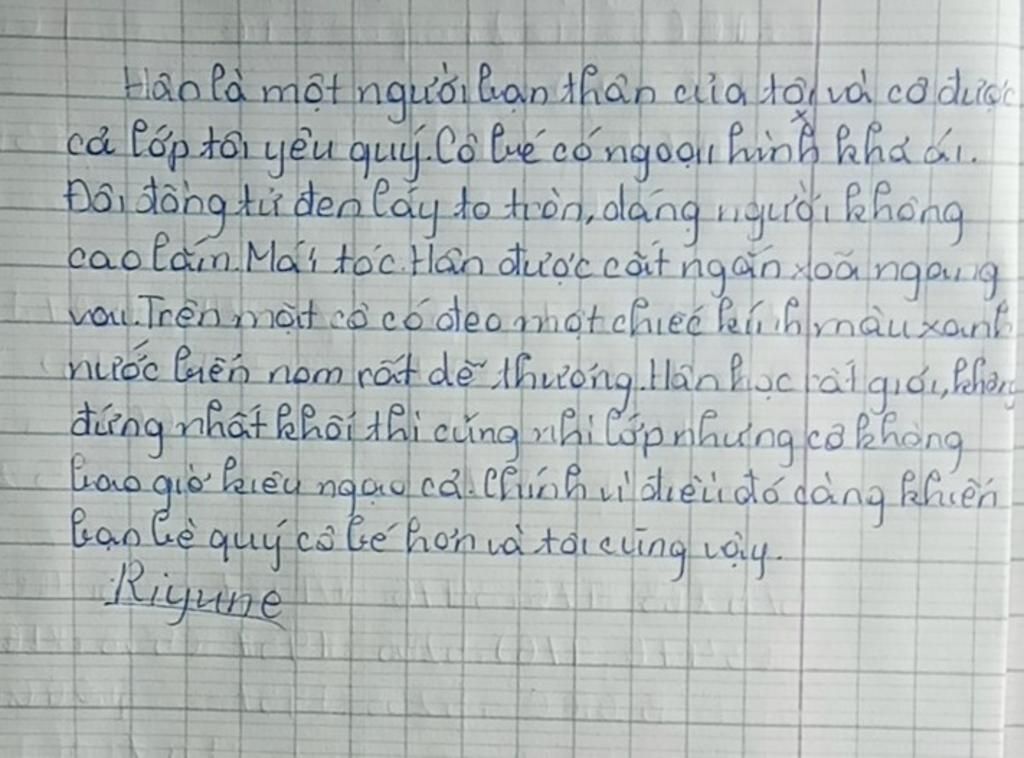 Hân là một người bạn thân của tôi và cô được
cả lớp tôi yêu quý. Cô bé có ngoại hình khả ái.
Đôi đồng tử đen láy to tròn, dáng người không
cao lắm. Mái tóc Hân được cắt ngắn xoã ngang
vai. Trên mặt cô có đeo một chiếc kính màu xanh
nước biển nom rất dễ thương. Hân học rất giỏi, không
đứng nhất khối thì cũng nhì lớp nhưng cô không
bao giờ kiêu ngạo cả. Chính vì điều đó càng khiến
bạn bè quý cô bé hơn và tôi cũng vậy.
Riyune